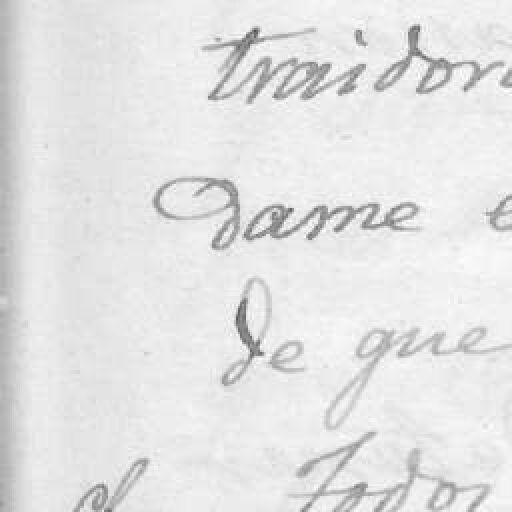 traidor
Dame
de que
Todos